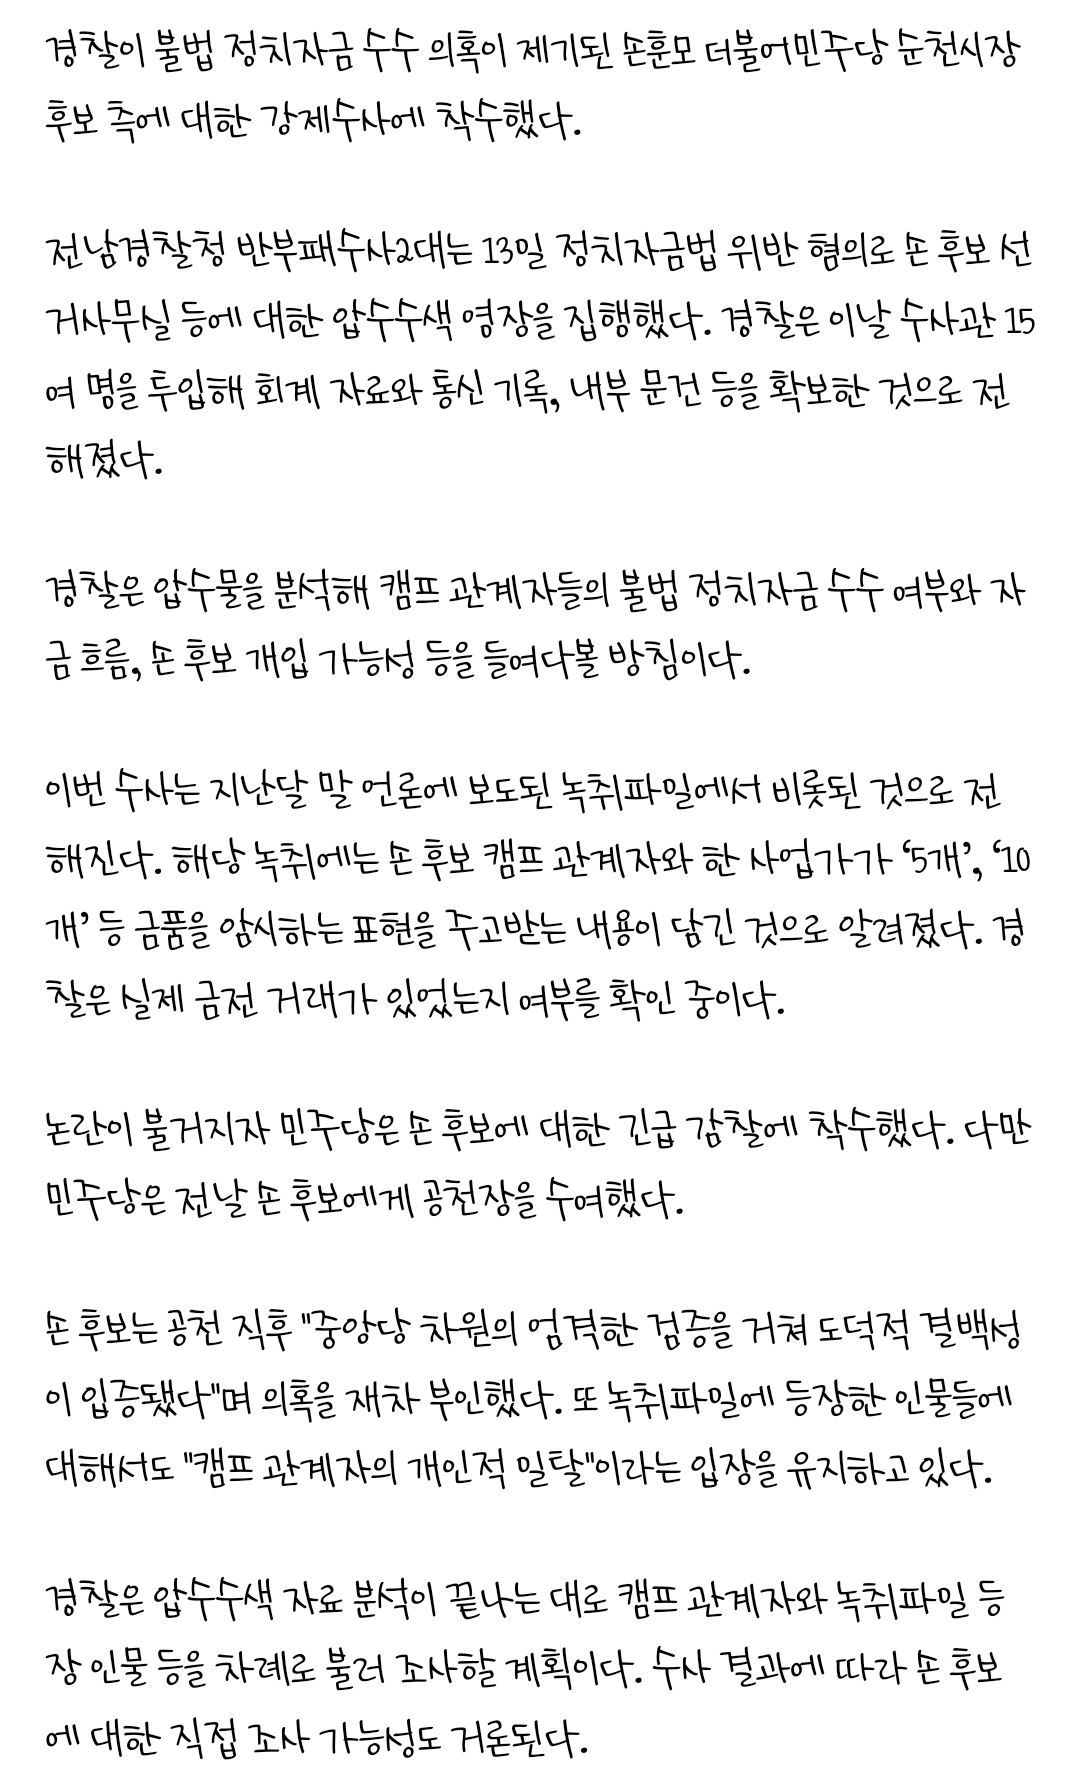 경찰이 불법 정치자금 수수 의혹이 제기된 손훈모 더불어민주당 순천시장
후보 측에 대한 강제수사에 착수했다.
전남경찰청 반부패수사2대는 13일 정치자금법 위반 혐의로 손 후보 선
거사무실 등에 대한 압수수색 영장을 집행했다. 경찰은 이날 수사관 15
여 명을 투입해 회계 자료와 통신 기록, 내부 문건 등을 확보한 것으로 전
해졌다.
경찰은 압수물을 분석해 캠프 관계자들의 불법 정치자금 수수 여부와 자
금 흐름, 손 후보 개입 가능성 등을 들여다볼 방침이다.
이번 수사는 지난달 말 언론에 보도된 녹취파일에서 비롯된 것으로 전
해진다. 해당 녹취에는 손 후보 캠프 관계자와 한 사업가가 ‘5개’, ‘10
개’ 등 금품을 암시하는 표현을 주고받는 내용이 담긴 것으로 알려졌다. 경
찰은 실제 금전 거래가 있었는지 여부를 확인 중이다.
논란이 불거지자 민주당은 손 후보에 대한 긴급 감찰에 착수했다. 다만
민주당은 전날 손 후보에게 공천장을 수여했다.
손 후보는 공천 직후 "중앙당 차원의 엄격한 검증을 거쳐 도덕적 결백성
이 입증됐다"며 의혹을 재차 부인했다. 또 녹취파일에 등장한 인물들에
대해서도 "캠프 관계자의 개인적 일탈"이라는 입장을 유지하고 있다.
경찰은 압수수색 자료 분석이 끝나는 대로 캠프 관계자와 녹취파일 등
장 인물 등을 차례로 불러 조사할 계획이다. 수사 결과에 따라 손 후보
에 대한 직접 조사 가능성도 거론된다.